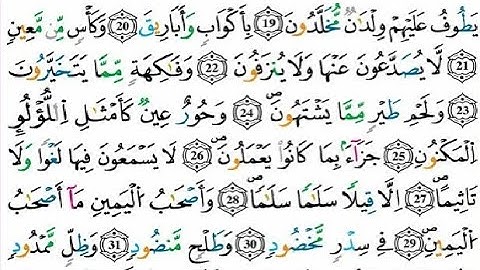 يَطُوفُ عَلَيْهِمْ وِلْدَٰنٌ مُّخَلَّدُونَ 19 بِأَكْوَابٍ وَأَبَارِيقَ 20 وَكَأْسٍ مِّن مَّعِينٍ
21 لَّا يُصَدَّعُونَ عَنْهَا وَلَا يُنزَفُونَ 22 وَفَٰكِهَةٍ مِّمَّا يَتَخَيَّرُونَ
23 وَلَحْمِ طَيْرٍ مِّمَّا يَشْتَهُونَ 24 وَحُورٌ عِينٌ كَأَمْثَٰلِ اِللُّؤْلُوِٕ
اِلْمَكْنُونِ 25 جَزَآءَۢ بِمَا كَانُوا يَعْمَلُونَ 26 لَا يَسْمَعُونَ فِيهَا لَغْوًا وَلَا
تَاثِيمًا 27 اِلَّا قِيلًا سَلَٰمًا سَلَٰمًا 28 وَأَصْحَٰبُ اُلْيَمِينِ مَآ أَصْحَٰبُ
اُلْيَمِينِ 29 فِي سِدْرٍ مَّخْضُودٍ 30 وَطَلْحٍ مَّنضُودٍ 31 وَظِلٍّ مَّمْدُودٍ